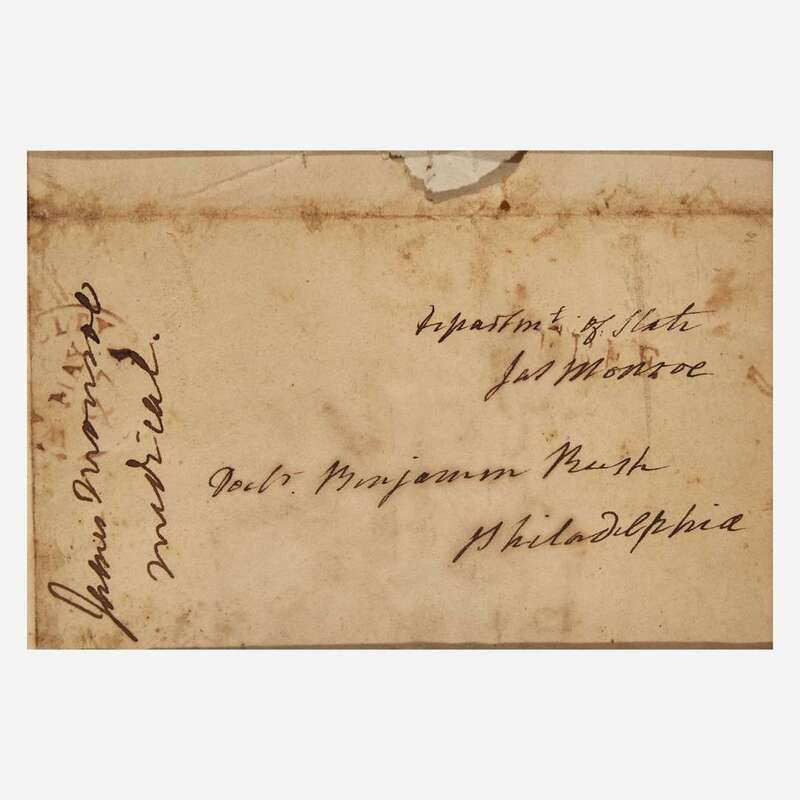 Departmt. of State
Jas Monroe
Doctr. Benjamin Rush
Philadelphia
James Monroe
medical.
MAY
FREE